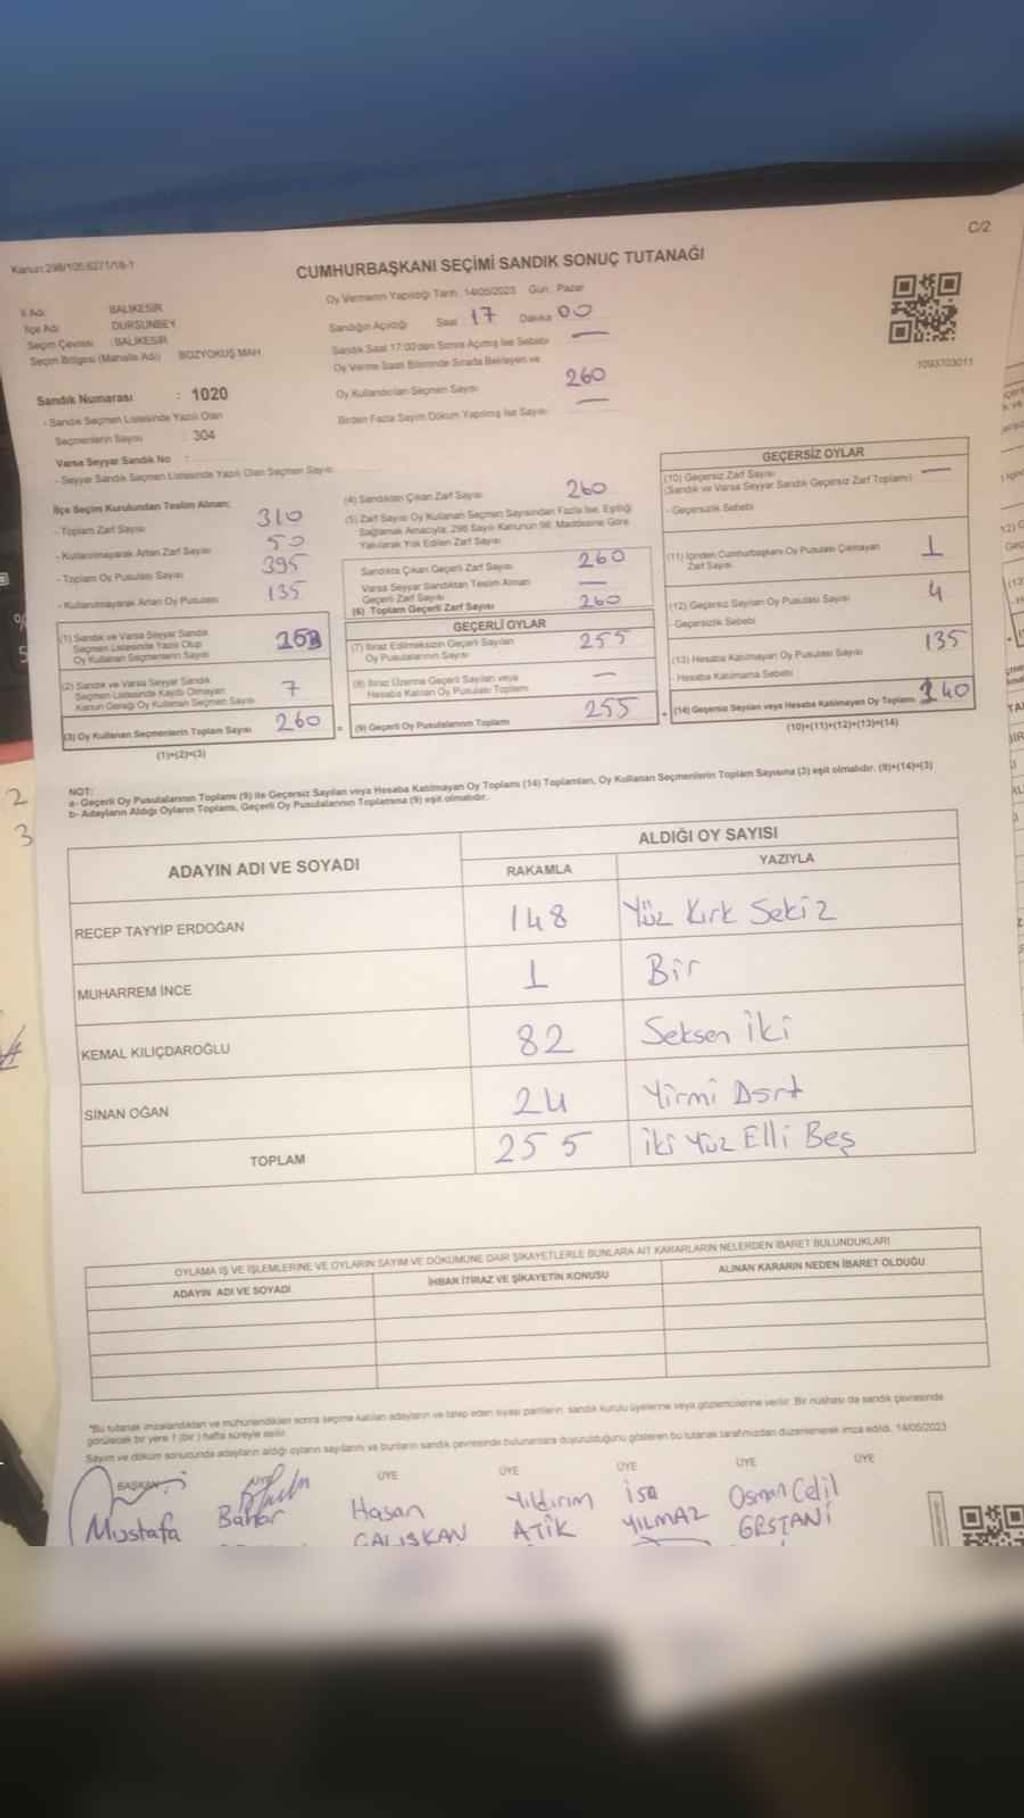 C/2
Kanun:298/105 6271/18-1
CUMHURBAŞKANI SEÇİMİ SANDIK SONUÇ TUTANAĞI
İl Adı : BALIKESİR
İlçe Adı : DURSUNBEY
Seçim Çevresi : BALIKESİR
Seçim Bölgesi (Mahalle Adı) : BOZYOKUŞ MAH
Oy Vermenin Yapıldığı Tarih : 14/05/2023 Gün : Pazar
Sandığın Açıldığı Saat 17 Dakika 00
Sandık Saat 17:00'den Sonra Açılmış İse Sebebi —
Oy Verme Saati Bitiminde Sırada Bekleyen ve
Oy Kullandırılan Seçmen Sayısı 260
Birden Fazla Sayım Döküm Yapılmış İse Sayısı —
1093703011
Sandık Numarası : 1020
- Sandık Seçmen Listesinde Yazılı Olan
Seçmenlerin Sayısı : 304
Varsa Seyyar Sandık No :
- Seyyar Sandık Seçmen Listesinde Yazılı Olan Seçmen Sayısı:
İlçe Seçim Kurulundan Teslim Alınan;
- Toplam Zarf Sayısı 310
- Kullanılmayarak Artan Zarf Sayısı 50
- Toplam Oy Pusulası Sayısı 395
- Kullanılmayarak Artan Oy Pusulası 135
(1) Sandık ve Varsa Seyyar Sandık
Seçmen Listesinde Yazılı Olup
Oy Kullanan Seçmenlerin Sayısı 253
(2) Sandık ve Varsa Seyyar Sandık
Seçmen Listesinde Kayıtlı Olmayan
Kanun Gereği Oy Kullanan Seçmen Sayısı 7
(3) Oy Kullanan Seçmenlerin Toplam Sayısı 260
(1)+(2)=(3)
(4) Sandıktan Çıkan Zarf Sayısı 260
(5) Zarf Sayısı Oy Kullanan Seçmen Sayısından Fazla İse, Eşitliği
Sağlamak Amacıyla; 298 Sayılı Kanunun 98. Maddesine Göre
Yakılarak Yok Edilen Zarf Sayısı
Sandıkta Çıkan Geçerli Zarf Sayısı 260
Varsa Seyyar Sandıktan Teslim Alınan
Geçerli Zarf Sayısı —
(6) Toplam Geçerli Zarf Sayısı 260
GEÇERLİ OYLAR
(7) İtiraz Edilmeksizin Geçerli Sayılan
Oy Pusulalarının Sayısı 255
(8) İtiraz Üzerine Geçerli Sayılan veya
Hesaba Katılan Oy Pusulası Toplamı —
(9) Geçerli Oy Pusulalarının Toplamı 255
GEÇERSİZ OYLAR
(10) Geçersiz Zarf Sayısı —
(Sandık ve Varsa Seyyar Sandık Geçersiz Zarf Toplamı)
- Geçersizlik Sebebi
(11) İçinden Cumhurbaşkanı Oy Pusulası Çıkmayan
Zarf Sayısı 1
(12) Geçersiz Sayılan Oy Pusulası Sayısı 4
- Geçersizlik Sebebi
(13) Hesaba Katılmayan Oy Pusulası Sayısı 135
- Hesaba Katılmama Sebebi
(14) Geçersiz Sayılan veya Hesaba Katılmayan Oy Toplamı 140
(10)+(11)+(12)+(13)=(14)
NOT:
a- Geçerli Oy Pusulalarının Toplamı (9) ile Geçersiz Sayılan veya Hesaba Katılmayan Oy Toplamı (14) Toplamları, Oy Kullanan Seçmenlerin Toplam Sayısına (3) eşit olmalıdır. (9)+(14)=(3)
b- Adayların Aldığı Oyların Toplamı, Geçerli Oy Pusulalarının Toplamına (9) eşit olmalıdır.
ADAYIN ADI VE SOYADI
ALDIĞI OY SAYISI
RAKAMLA YAZIYLA
RECEP TAYYİP ERDOĞAN 148 Yüz Kırk Sekiz
MUHARREM İNCE 1 Bir
KEMAL KILIÇDAROĞLU 82 Seksen iki
SİNAN OĞAN 24 Yirmi Dört
TOPLAM 255 iki Yüz Elli Beş
OYLAMA İŞ VE İŞLEMLERİNE VE OYLARIN SAYIM VE DÖKÜMÜNE DAİR ŞİKAYETLERLE BUNLARA AİT KARARLARIN NELERDEN İBARET BULUNDUKLARI
ADAYIN ADI VE SOYADI İHBAR İTİRAZ VE ŞİKAYETİN KONUSU ALINAN KARARIN NEDEN İBARET OLDUĞU
*Bu tutanak imzalandıktan ve mühürlendikten sonra seçime katılan adayların ve talep eden siyasi partilerin, sandık kurulu üyelerine veya gözlemcilerine verilir. Bir nüshası da sandık çevresinde
görülecek bir yere 1 (bir ) hafta süreyle asılır.
Sayım ve döküm sonucunda adayların aldığı oyların sayılarını ve bunların sandık çevresinde bulunanlara duyurulduğunu gösteren bu tutanak tarafımızdan düzenlenerek imza edildi. 14/05/2023
BAŞKAN ÜYE ÜYE ÜYE ÜYE ÜYE ÜYE
Mustafa Bahar Hasan Yıldırım isa Osman Celil
ÇALIŞKAN ATİK YILMAZ GESTANİ